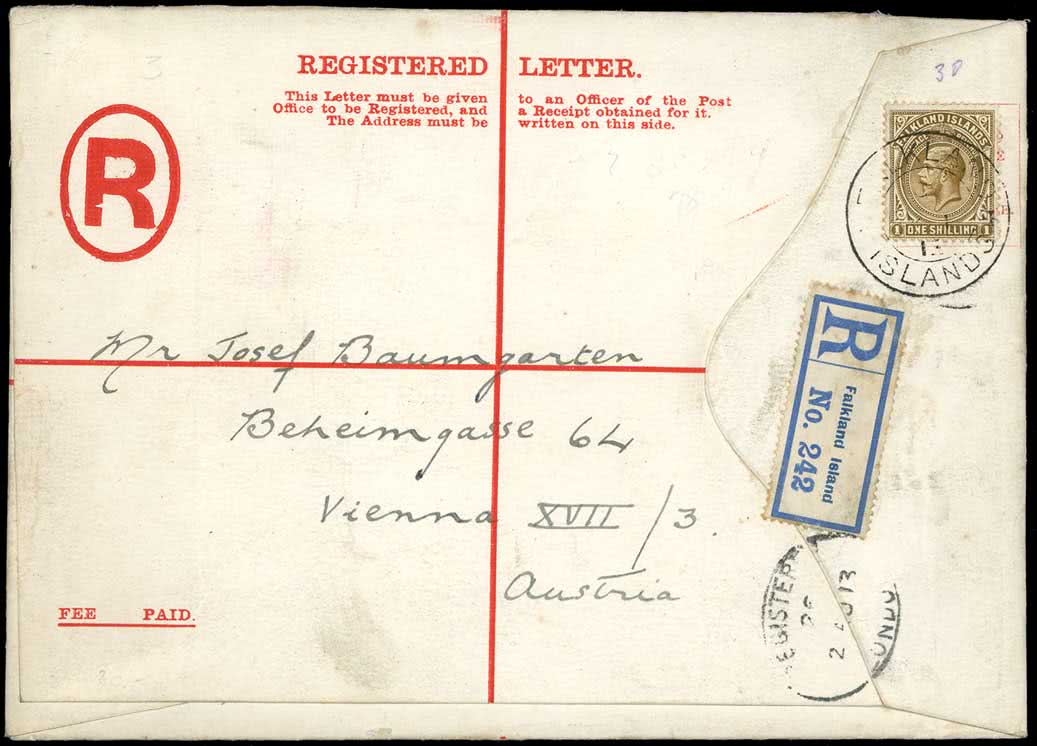 REGISTERED LETTER.
This Letter must be given to an Officer of the Post
Office to be Registered, and a Receipt obtained for it.
The Address must be written on this side.
R
3D
FALKLAND ISLANDS
1 ONE SHILLING 1
ISLANDS
R
Falkland Island
No. 242
Mr Josef Baumgarten
Beheimgasse 64
Vienna XVII/3.
Austria
FEE PAID.
EGISTER
2 AU 13